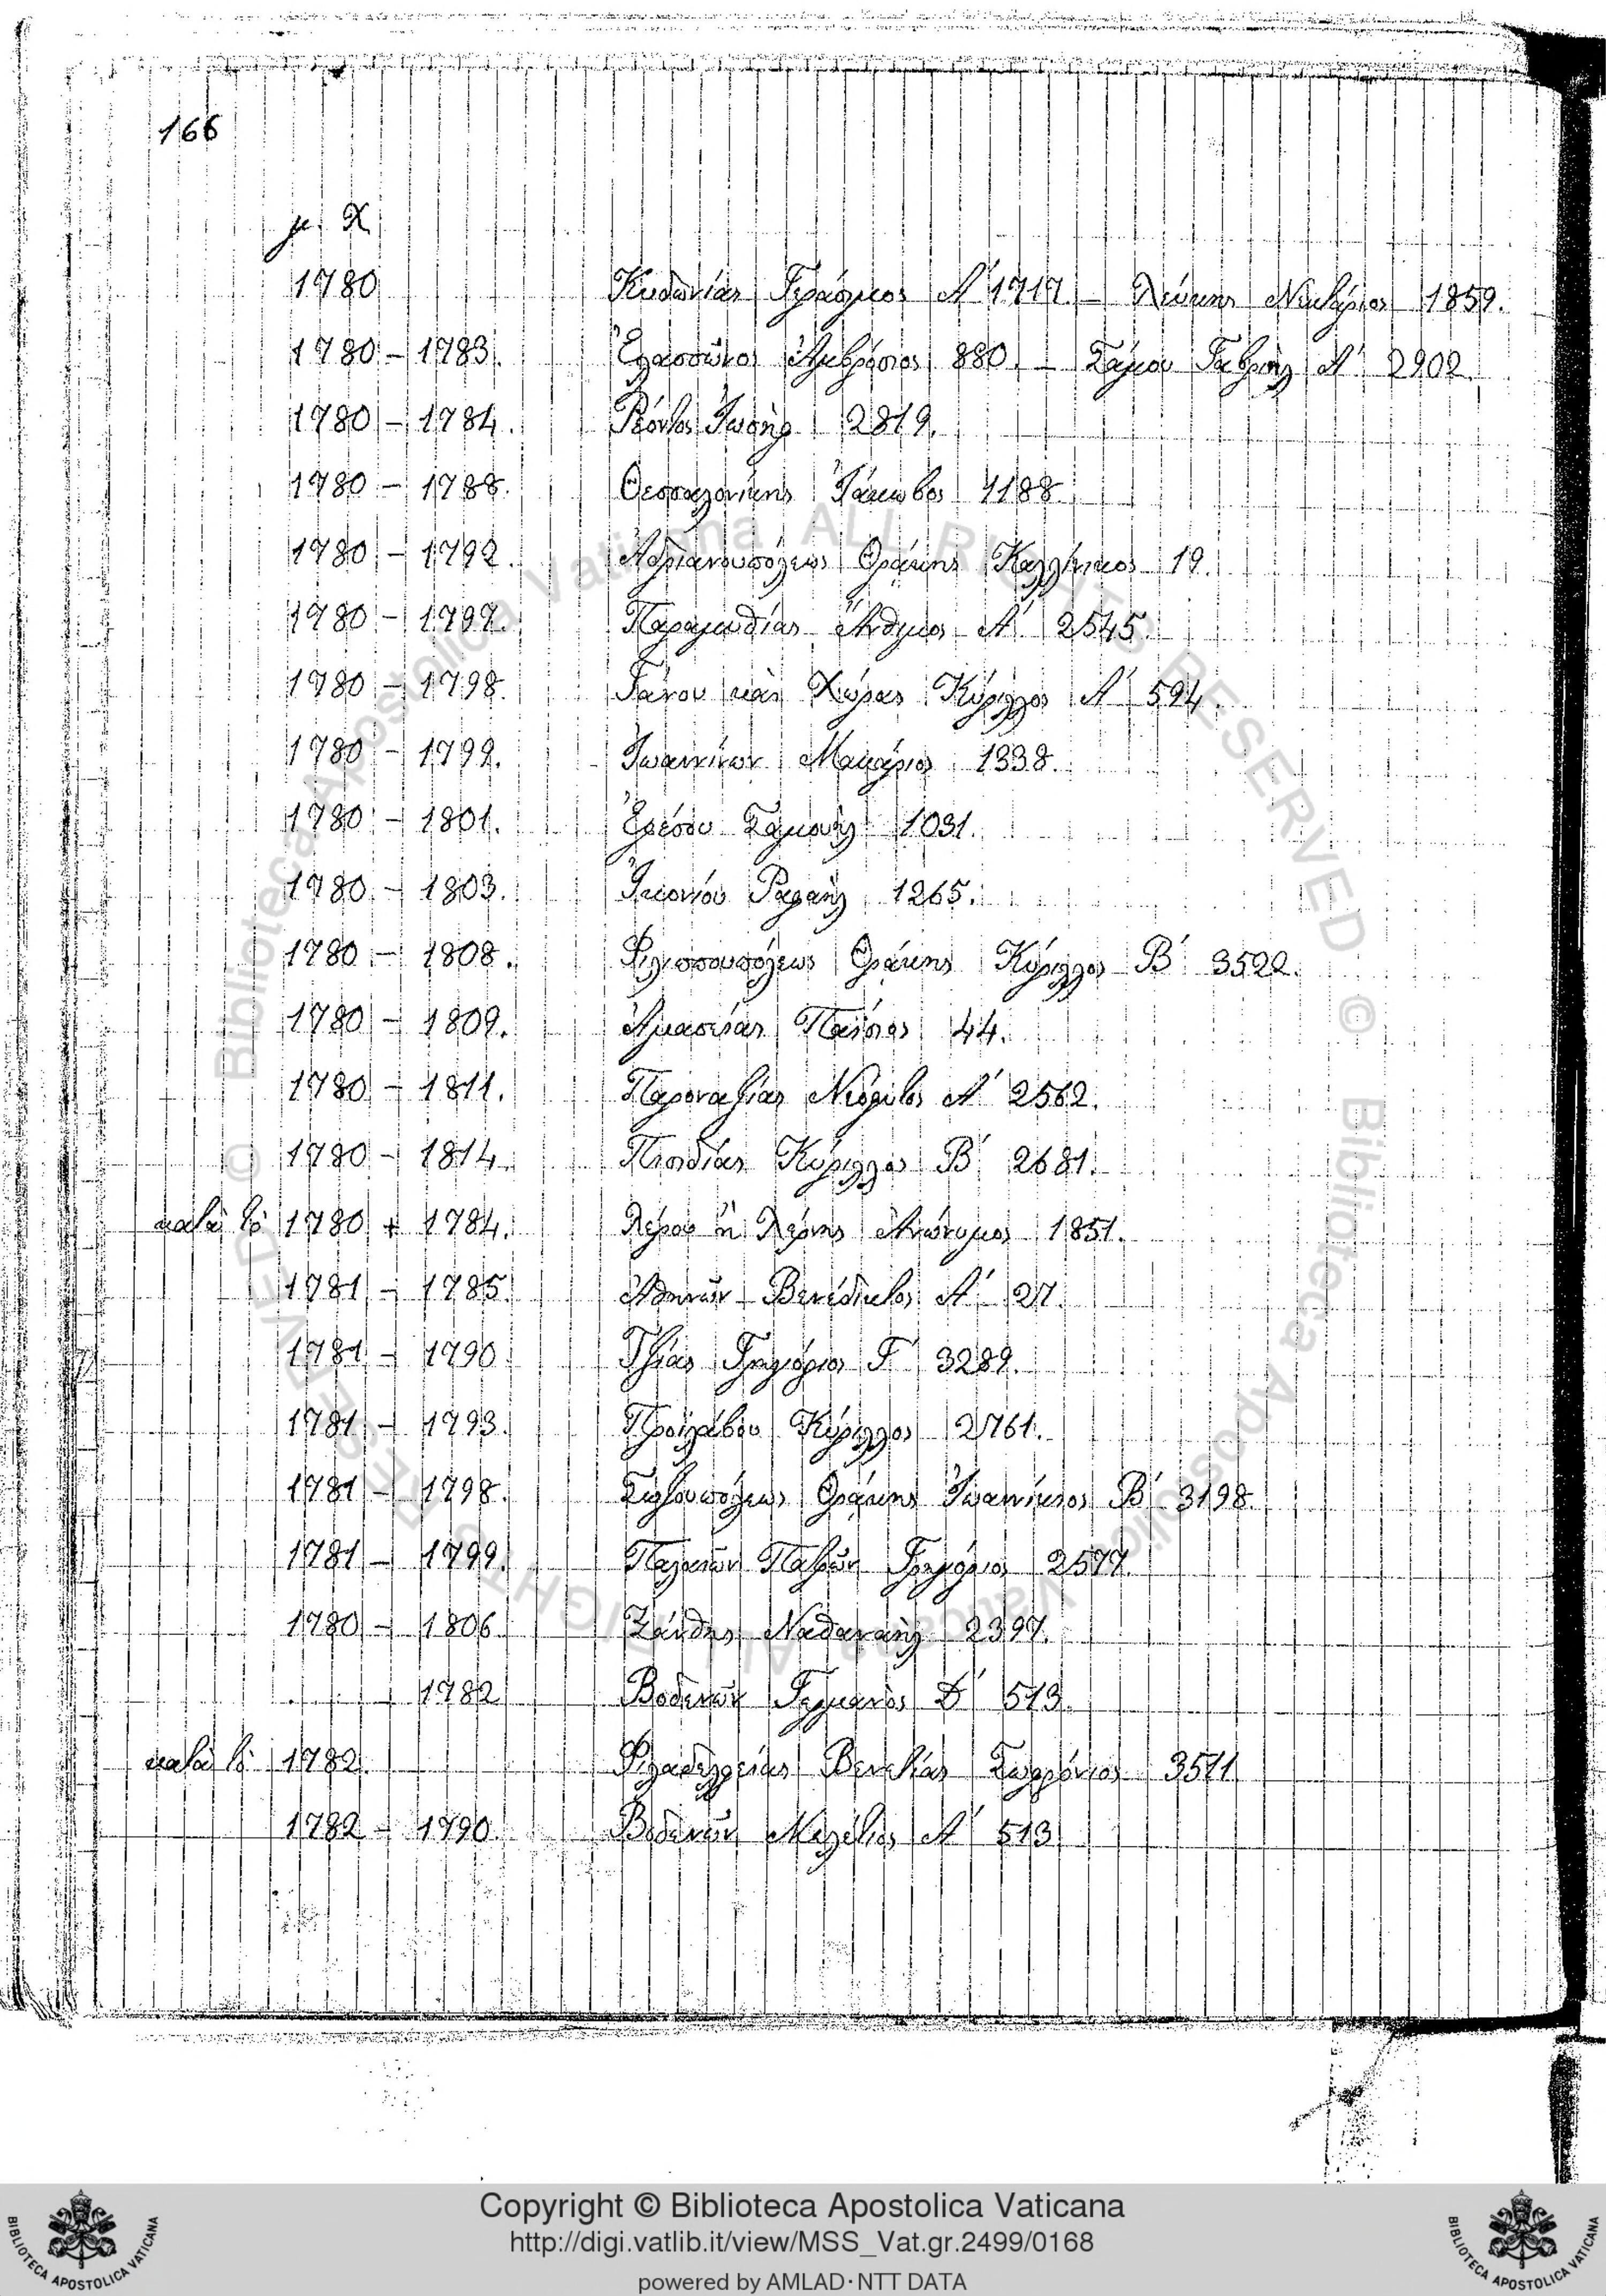 166
μ. Χ
1780 Κυδωνίας Γεράσιμος Α΄ 1717. – Λεύκης Νεκτάριος 1859.
1780 – 1783. Ἐλασσῶνος Ἀμβρόσιος 880. – Σάμου Γαβριὴλ Α΄ 2902.
1780 – 1784. Ῥέοντος Ἰωσὴφ 2819.
1780 – 1788. Θεσσαλονίκης Ἰάκωβος 1188.
1780 – 1792. Ἀδριανουπόλεως Θράκης Καλλίνικος 19.
1780 – 1797. Παραμυθίας Ἄνθιμος Α΄ 2545.
1780 – 1798. Γάνου καὶ Χώρας Κύριλλος Α΄ 594.
1780 – 1799. Ἰωαννίνων Μακάριος 1338.
1780 – 1801. Ἐφέσου Σαμουὴλ 1031.
1780 – 1803. Ἰκονίου Ραφαὴλ 1265.
1780 – 1808. Φιλιππουπόλεως Θράκης Κύριλλος Β΄ 3522.
1780 – 1809. Ἀμασείας Παΐσιος 44.
1780 – 1811. Παροναξίας Νεόφυτος Α΄ 2562.
1780 – 1814. Πισιδίας Κύριλλος Β΄ 2681.
κατὰ τὸ 1780 + 1784. Λέρου ἢ Λέρνης Ἀνώνυμος 1851.
1781 – 1785. Ἀθηνῶν Βενέδικτος Α΄ 27.
1781 – 1790. Τζίας Γρηγόριος Γ΄ 3289.
1781 – 1793. Προϊλάβου Κύριλλος 2761.
1781 – 1798. Σωζουπόλεως Θράκης Ἰωαννίκιος Β΄ 3198.
1781 – 1799. Παλαιῶν Πατρῶν Γρηγόριος 2577.
1780 – 1806. Ξάνθης Ναθαναὴλ 2397.
– 1782 Βοδενῶν Γερμανὸς Δ΄ 513.
κατὰ τὸ 1782. Φιλαδελφείας Βενετίας Σωφρόνιος 3511
1782 – 1790. Βοδενῶν Μελέτιος Α΄ 513
Copyright © Biblioteca Apostolica Vaticana
http://digi.vatlib.it/view/MSS_Vat.gr.2499/0168
powered by AMLAD·NTT DATA